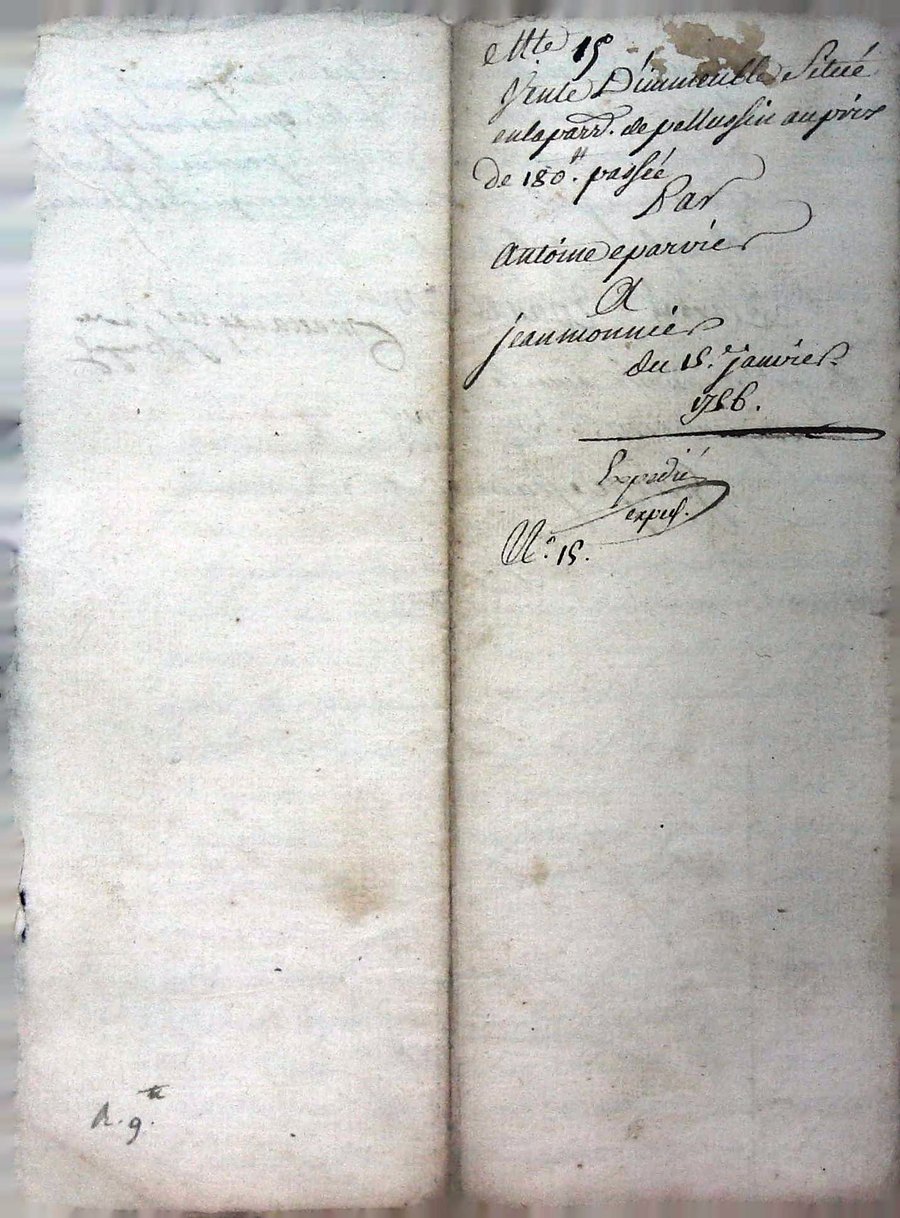 Cotte 15
Vente D'immeuble Situé
en la parr. de pellussin au prix
de 180ᵗᵗ. passée
Par
Antoine eparvier
A
jean monnier
du 15.e janvier
1786.
Expedié
exped.
N.° 15.
R. 9.tt